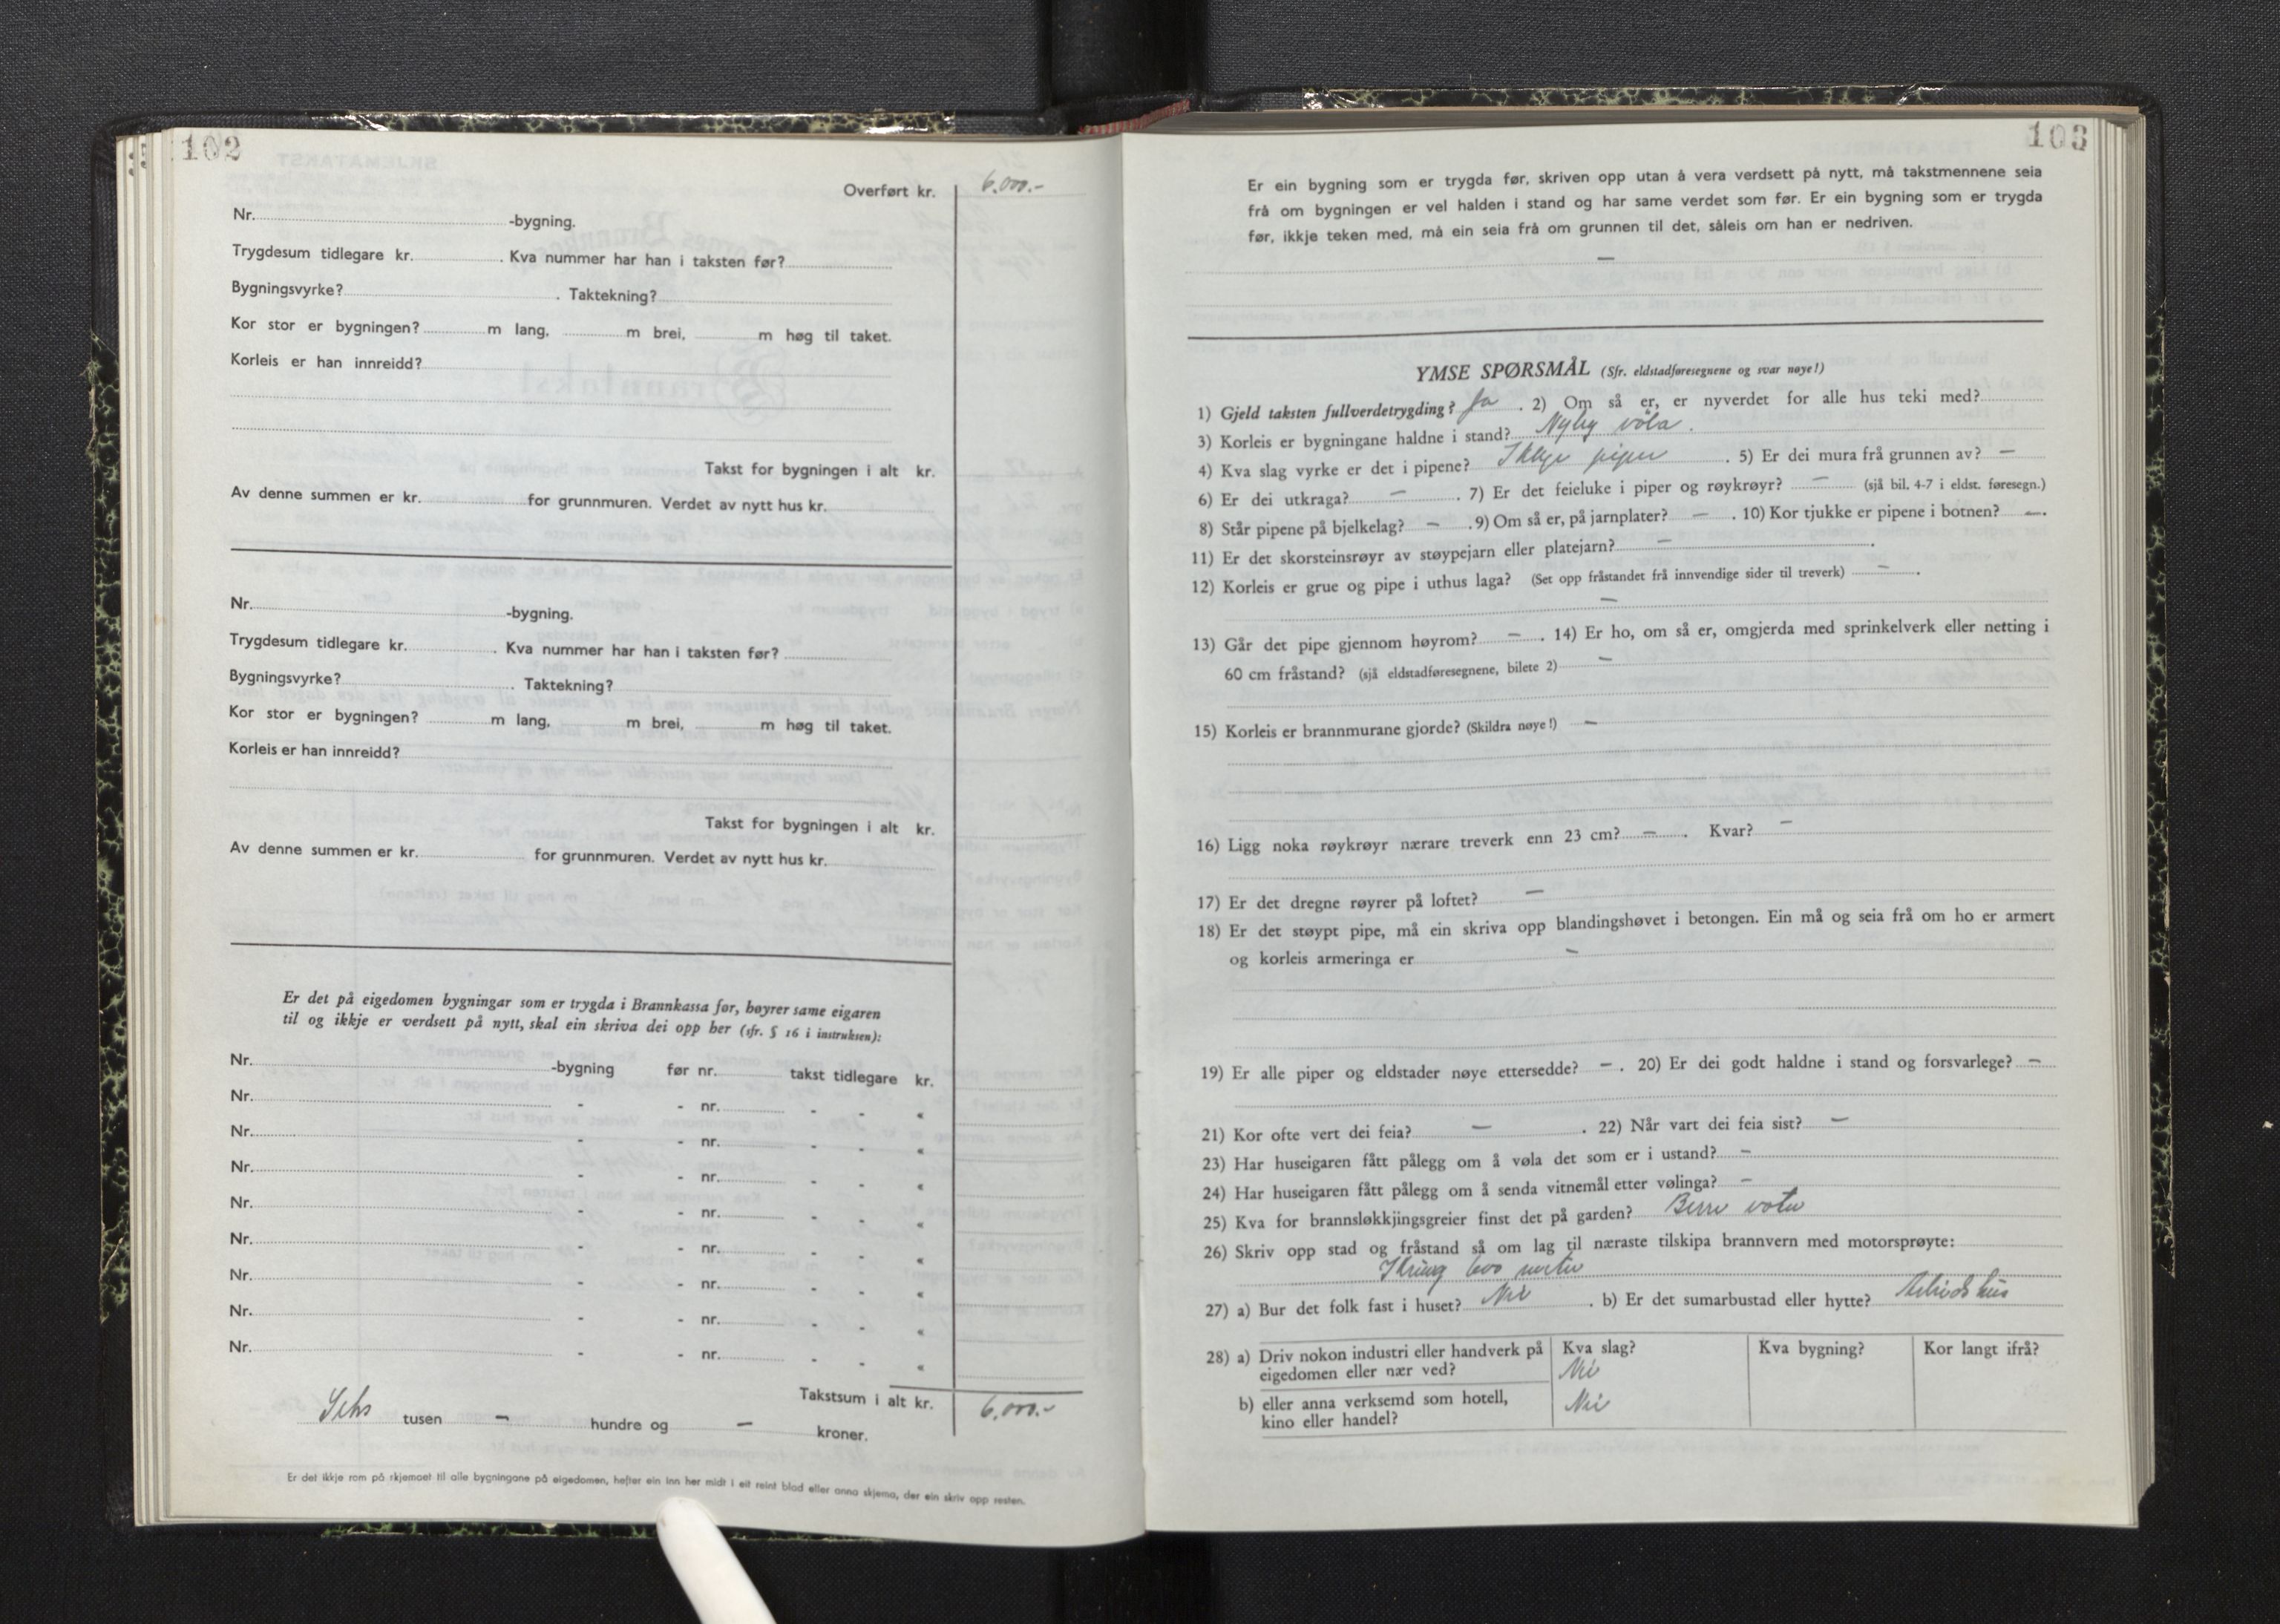 102
Overført kr. 6.000.-
Nr. -bygning.
Trygdesum tidlegare kr. . Kva nummer har han i taksten før?
Bygningsvyrke? . Taktekning?
Kor stor er bygningen? m lang, m brei, m høg til taket.
Korleis er han innreidd?
Takst for bygningen i alt kr.
Av denne summen er kr. for grunnmuren. Verdet av nytt hus kr.
Nr. -bygning.
Trygdesum tidlegare kr. . Kva nummer har han i taksten før?
Bygningsvyrke? . Taktekning?
Kor stor er bygningen? m lang, m brei, m høg til taket.
Korleis er han innreidd?
Takst for bygningen i alt kr.
Av denne summen er kr. for grunnmuren. Verdet av nytt hus kr.
Er det på eigedomen bygningar som er trygda i Brannkassa før, høyrer same eigaren
til og ikkje er verdsett på nytt, skal ein skriva dei opp her (sfr. § 16 i instruksen):
Nr. -bygning før nr. takst tidlegare kr.
Nr. - - nr. - - «
Nr. - - nr. - - «
Nr. - - nr. - - «
Nr. - - nr. - - «
Nr. - - nr. - - «
Nr. - - nr. - - «
Nr. - - nr. - - «
Nr. - - nr. - - «
Takstsum i alt kr. 6.000.-
Seks tusen — hundre og — kroner.
Er det ikkje rom på skjemaet til alle bygningane på eigedomen, hefter ein inn her midt i eit reint blad eller anna skjema, der ein skriv opp resten.
103
Er ein bygning som er trygda før, skriven opp utan å vera verdsett på nytt, må takstmennene seia
frå om bygningen er vel halden i stand og har same verdet som før. Er ein bygning som er trygda
før, ikkje teken med, må ein seia frå om grunnen til det, såleis om han er nedriven.
—
YMSE SPØRSMÅL (Sfr. eldstadføresegnene og svar nøye!)
1) Gjeld taksten fullverdetrygding? Ja . 2) Om så er, er nyverdet for alle hus teki med?
3) Korleis er bygningane haldne i stand? Nyleg vøla .
4) Kva slag vyrke er det i pipene? Ikkje piper . 5) Er dei mura frå grunnen av? —
6) Er dei utkraga? — . 7) Er det feieluke i piper og røykrøyr? — (sjå bil. 4-7 i eldst. føresegn.)
8) Står pipene på bjelkelag? — . 9) Om så er, på jarnplater? — . 10) Kor tjukke er pipene i botnen? — .
11) Er det skorsteinsrøyr av støypejarn eller platejarn? — .
12) Korleis er grue og pipe i uthus laga? (Set opp fråstandet frå innvendige sider til treverk) — .
—
13) Går det pipe gjennom høyrom? — . 14) Er ho, om så er, omgjerda med sprinkelverk eller netting i
60 cm fråstand? (sjå eldstadføresegnene, bilete 2) —
15) Korleis er brannmurane gjorde? (Skildra nøye!) —
16) Ligg noka røykrøyr nærare treverk enn 23 cm? — . Kvar? —
17) Er det dregne røyrer på loftet? —
18) Er det støypt pipe, må ein skriva opp blandingshøvet i betongen. Ein må og seia frå om ho er armert
og korleis armeringa er —
19) Er alle piper og eldstader nøye ettersedde? — . 20) Er dei godt haldne i stand og forsvarlege? —
21) Kor ofte vert dei feia? — . 22) Når vart dei feia sist? —
23) Har huseigaren fått pålegg om å vøla det som er i ustand? —
24) Har huseigaren fått pålegg om å senda vitnemål etter vølinga? —
25) Kva for brannsløkkjingsgreier finst det på garden? Berre vatn
26) Skriv opp stad og fråstand så om lag til næraste tilskipa brannvern med motorsprøyte:
Ikring 600 meter
27) a) Bur det folk fast i huset? Nei . b) Er det sumarbustad eller hytte? Arbeidshus
28) a) Driv nokon industri eller handverk på eigedomen eller nær ved? Kva slag? Nei Kva bygning? Kor langt ifrå?
b) eller anna verksemd som hotell, kino eller handel? Nei